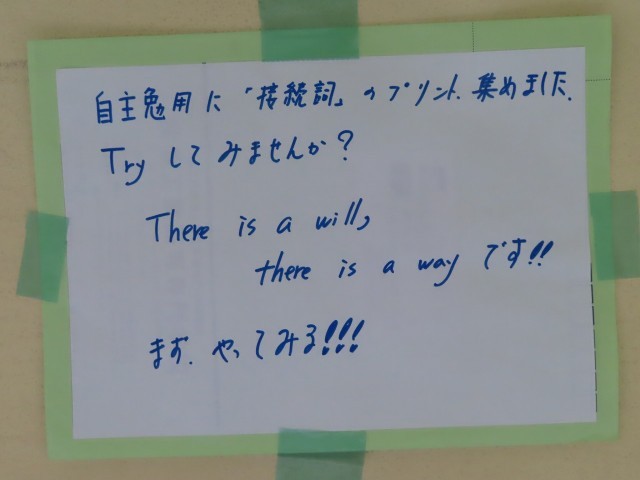 自主勉用に「接続詞」のプリント、集めました。
Tryしてみませんか？
There is a will,
there is a way です!!
まず、やってみる!!!